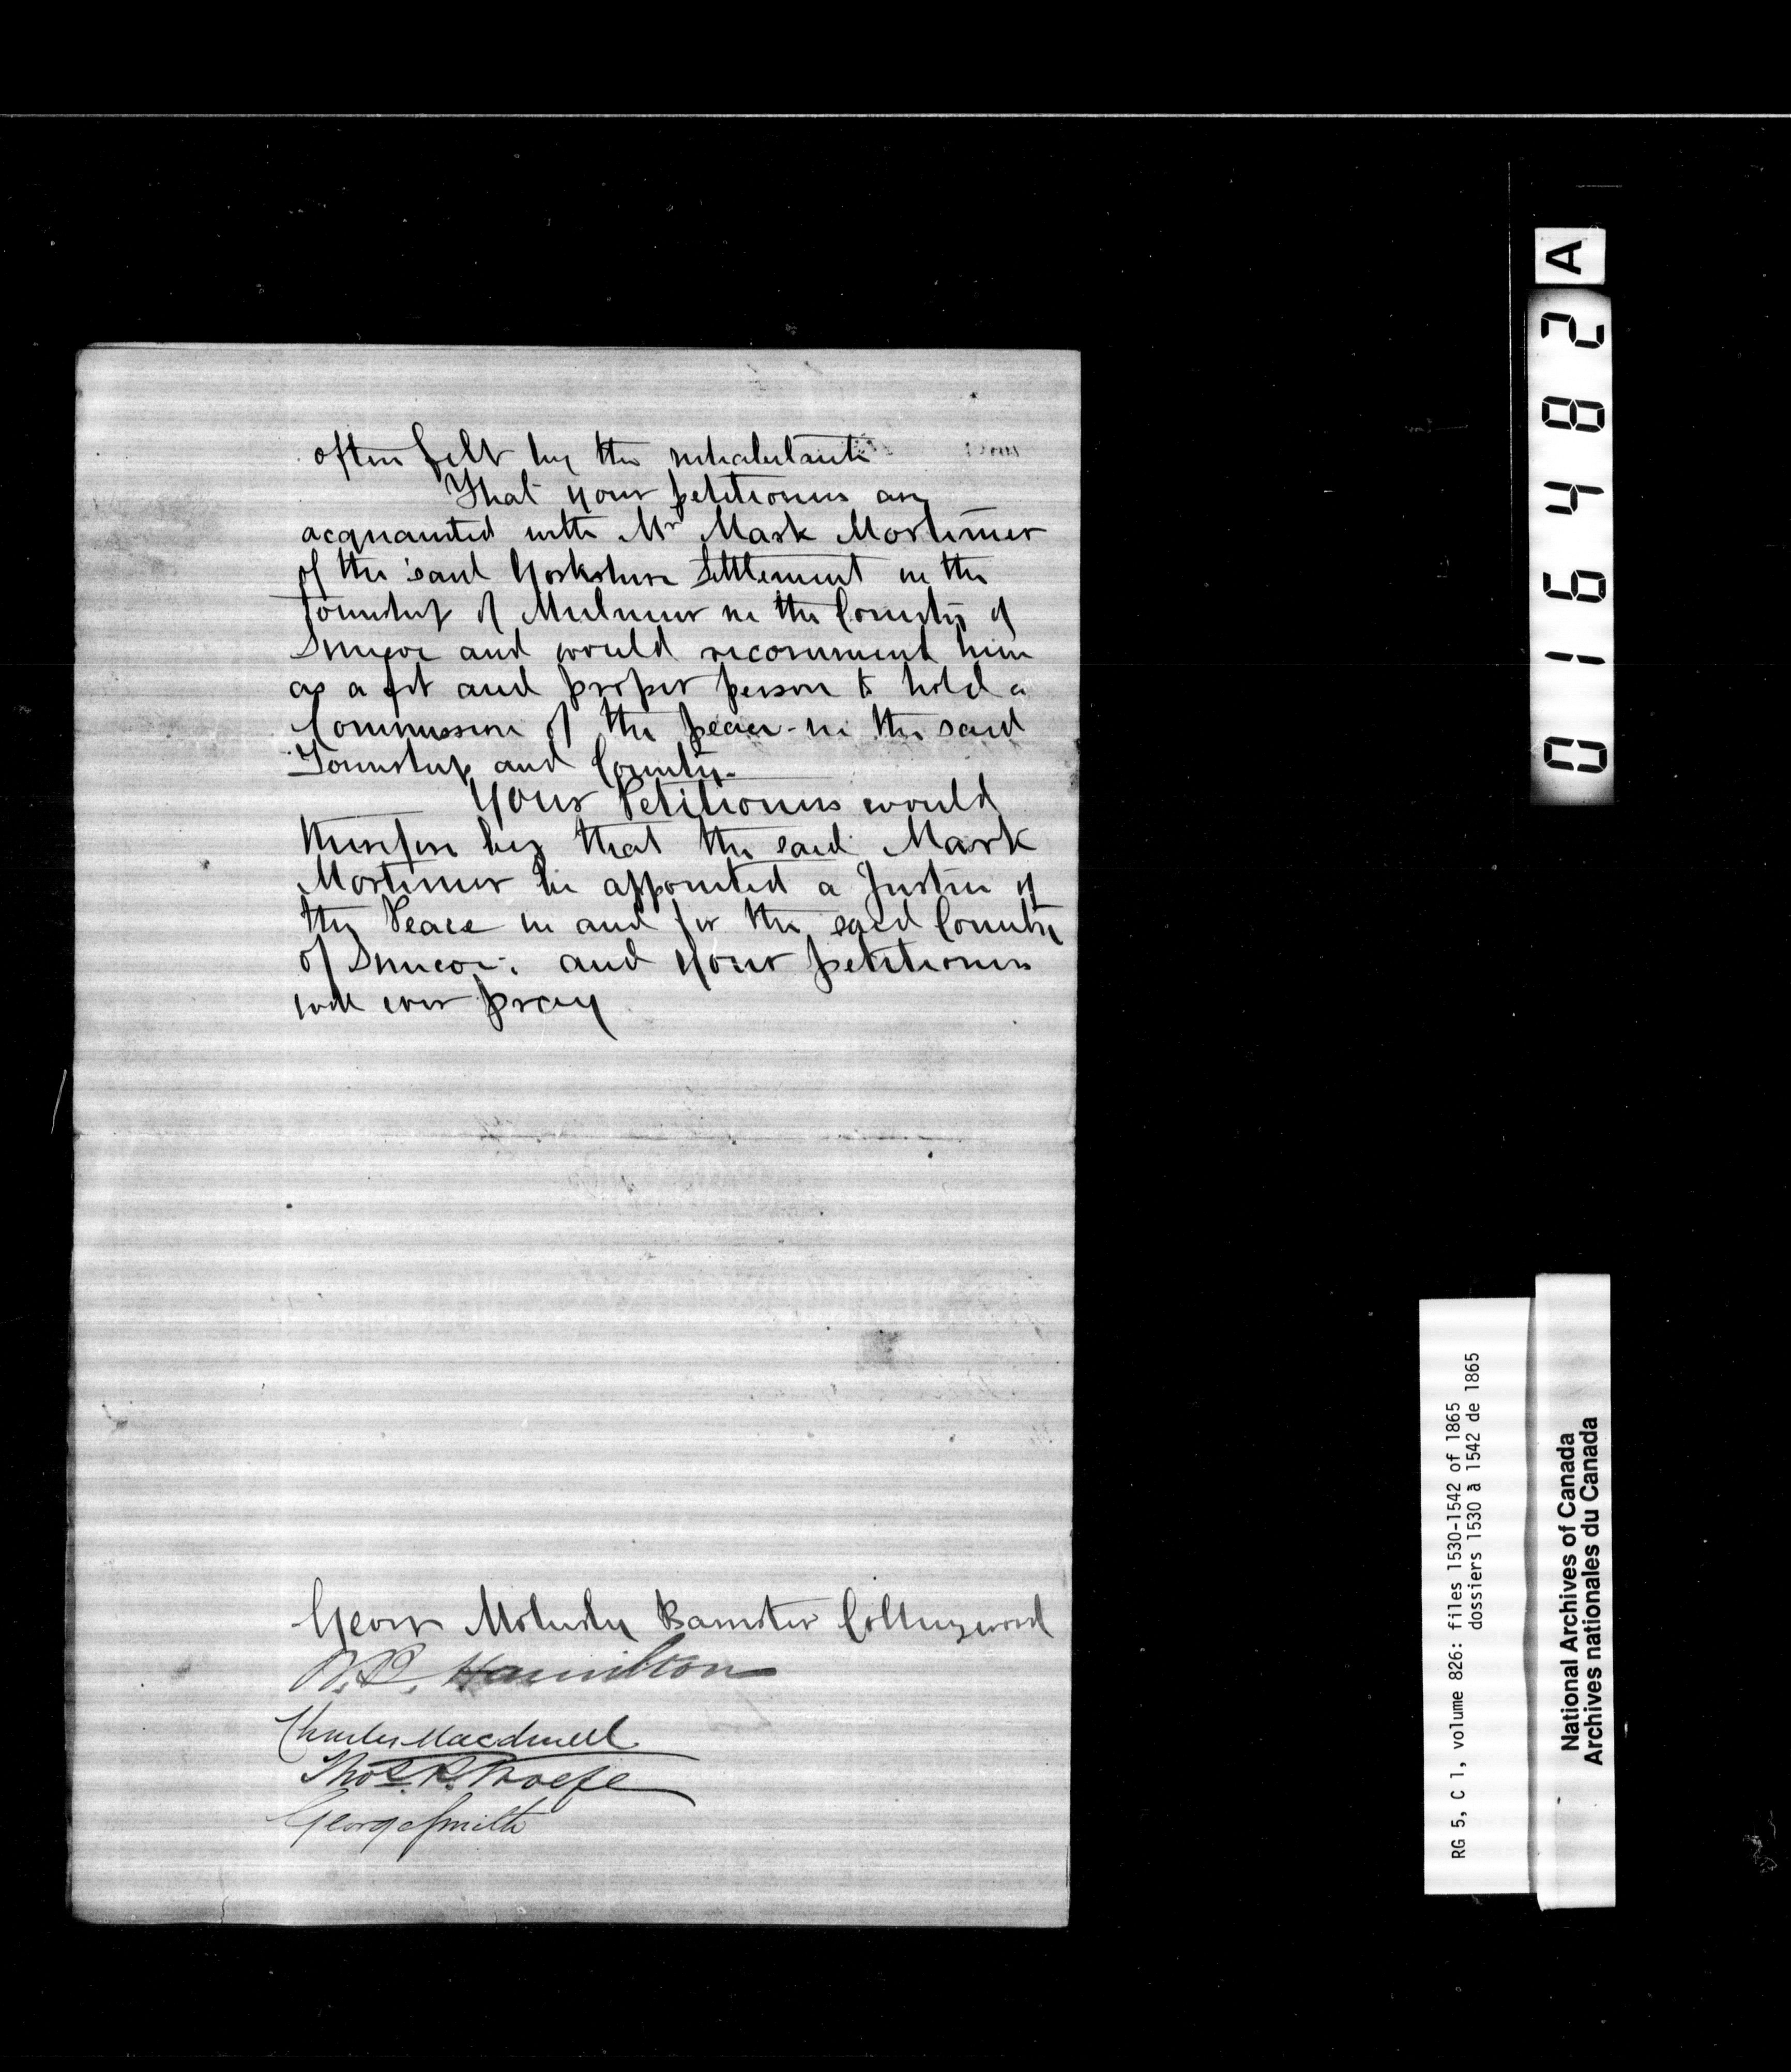 often felt by the inhabitants
That your petitioners are
acquainted with Mr Mark Mortimer
of the said Yorkshire Settlement in the
Township of Mulmur in the County of
Simcoe and would recommend him
as a fit and proper person to hold a
Commission of the peace in the said
Township and County.
Your Petitioners would
therefore beg that the said Mark
Mortimer be appointed a Justice of
the Peace in and for the said County
of Simcoe; and your petitioners
will ever pray
Barrister Collingwood
Hamilton
Charles Macdonell
Thos. R.
George Smith
016482 A
RG 5, C 1, volume 826: files 1530-1542 of 1865
dossiers 1530 à 1542 de 1865
National Archives of Canada
Archives nationales du Canada